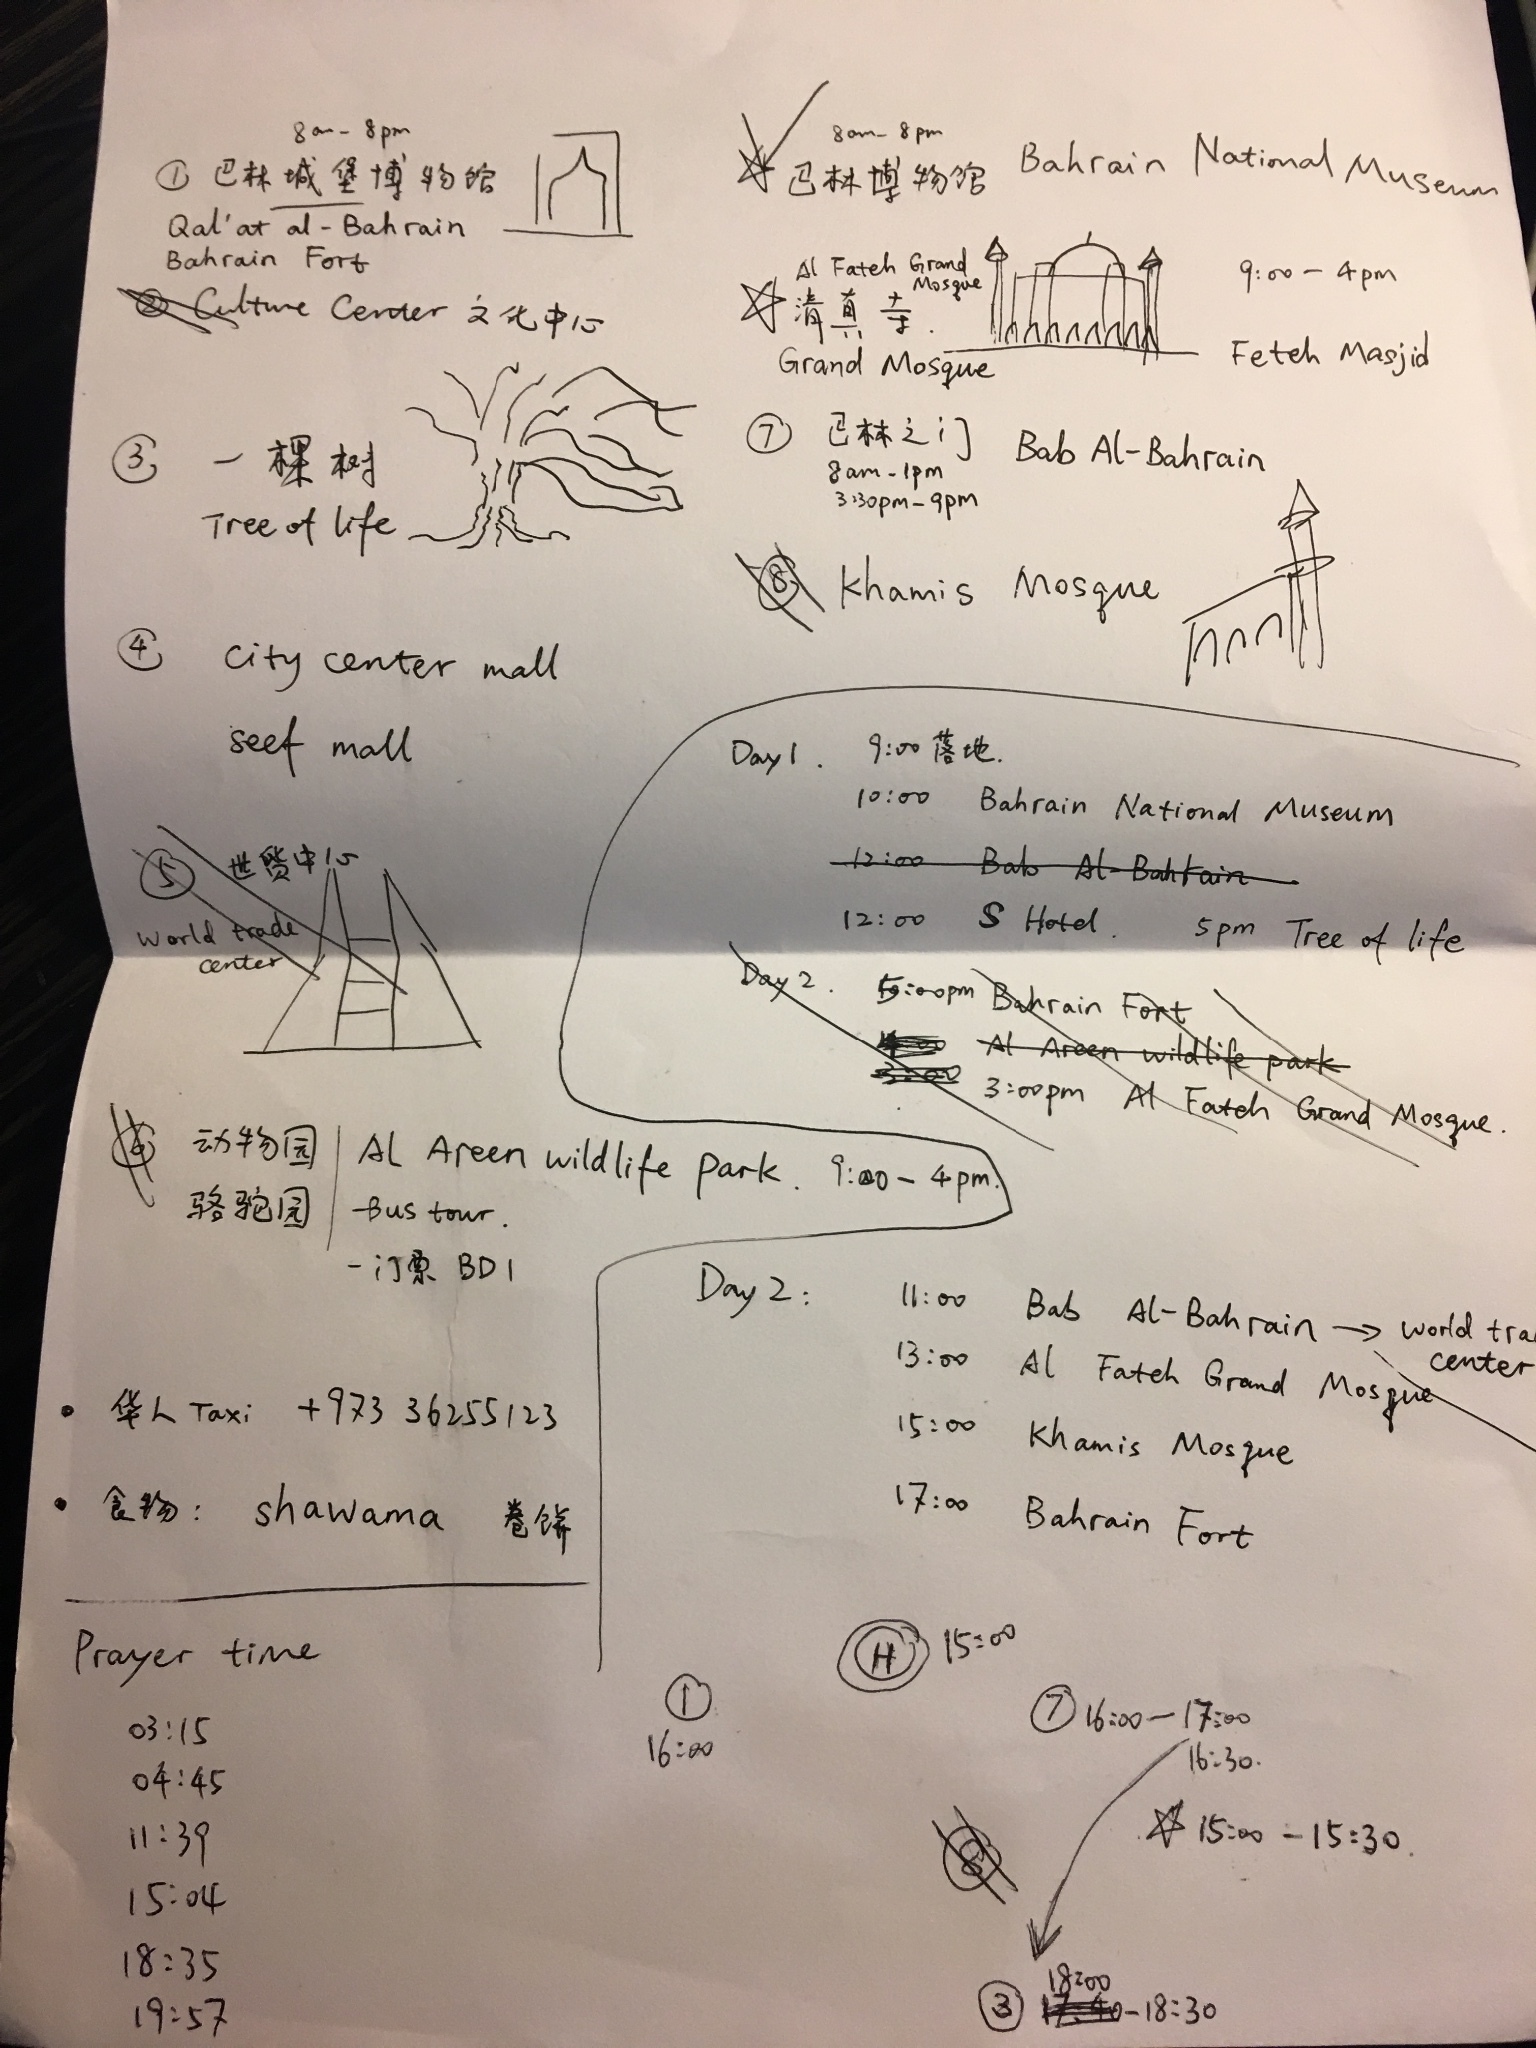 8am - 8pm
① 巴林城堡博物馆
Qal'at al-Bahrain
Bahrain Fort
② Culture Center 文化中心
③ 一棵树
Tree of life
④ city center mall
seef mall
⑤ 世贸中心
world trade
center
⑥ 动物园 Al Areen wildlife park. 9:00 - 4pm.
骆驼园 - Bus tour.
- 门票 BD 1
• 华人 Taxi +973 36255123
• 食物: shawama 卷饼
Prayer time
03:15
04:45
11:39
15:04
18:35
19:57
8am - 8pm
巴林博物馆 Bahrain National Museum
Al Fateh Grand
Mosque
清真寺.
Grand Mosque
9:00 - 4pm
Feteh Masjid
⑦ 巴林之门 Bab Al-Bahrain
8am - 1pm
3:30pm - 9pm
⑧ Khamis Mosque
Day 1. 9:00 落地.
10:00 Bahrain National Museum
12:00 Bab Al-Bahrain
12:00 S Hotel. 5pm Tree of life
Day 2. 5:00pm Bahrain Fort
Al Areen wildlife park
3:00
3:00pm Al Fateh Grand Mosque.
Day 2: 11:00 Bab Al-Bahrain → world tra
center
13:00 Al Fateh Grand Mosque
15:00 Khamis Mosque
17:00 Bahrain Fort
Ⓗ 15:00
① 16:00
⑦ 16:00 - 17:00
16:30.
☆ 15:00 - 15:30.
18:00
③ 17:40 - 18:30